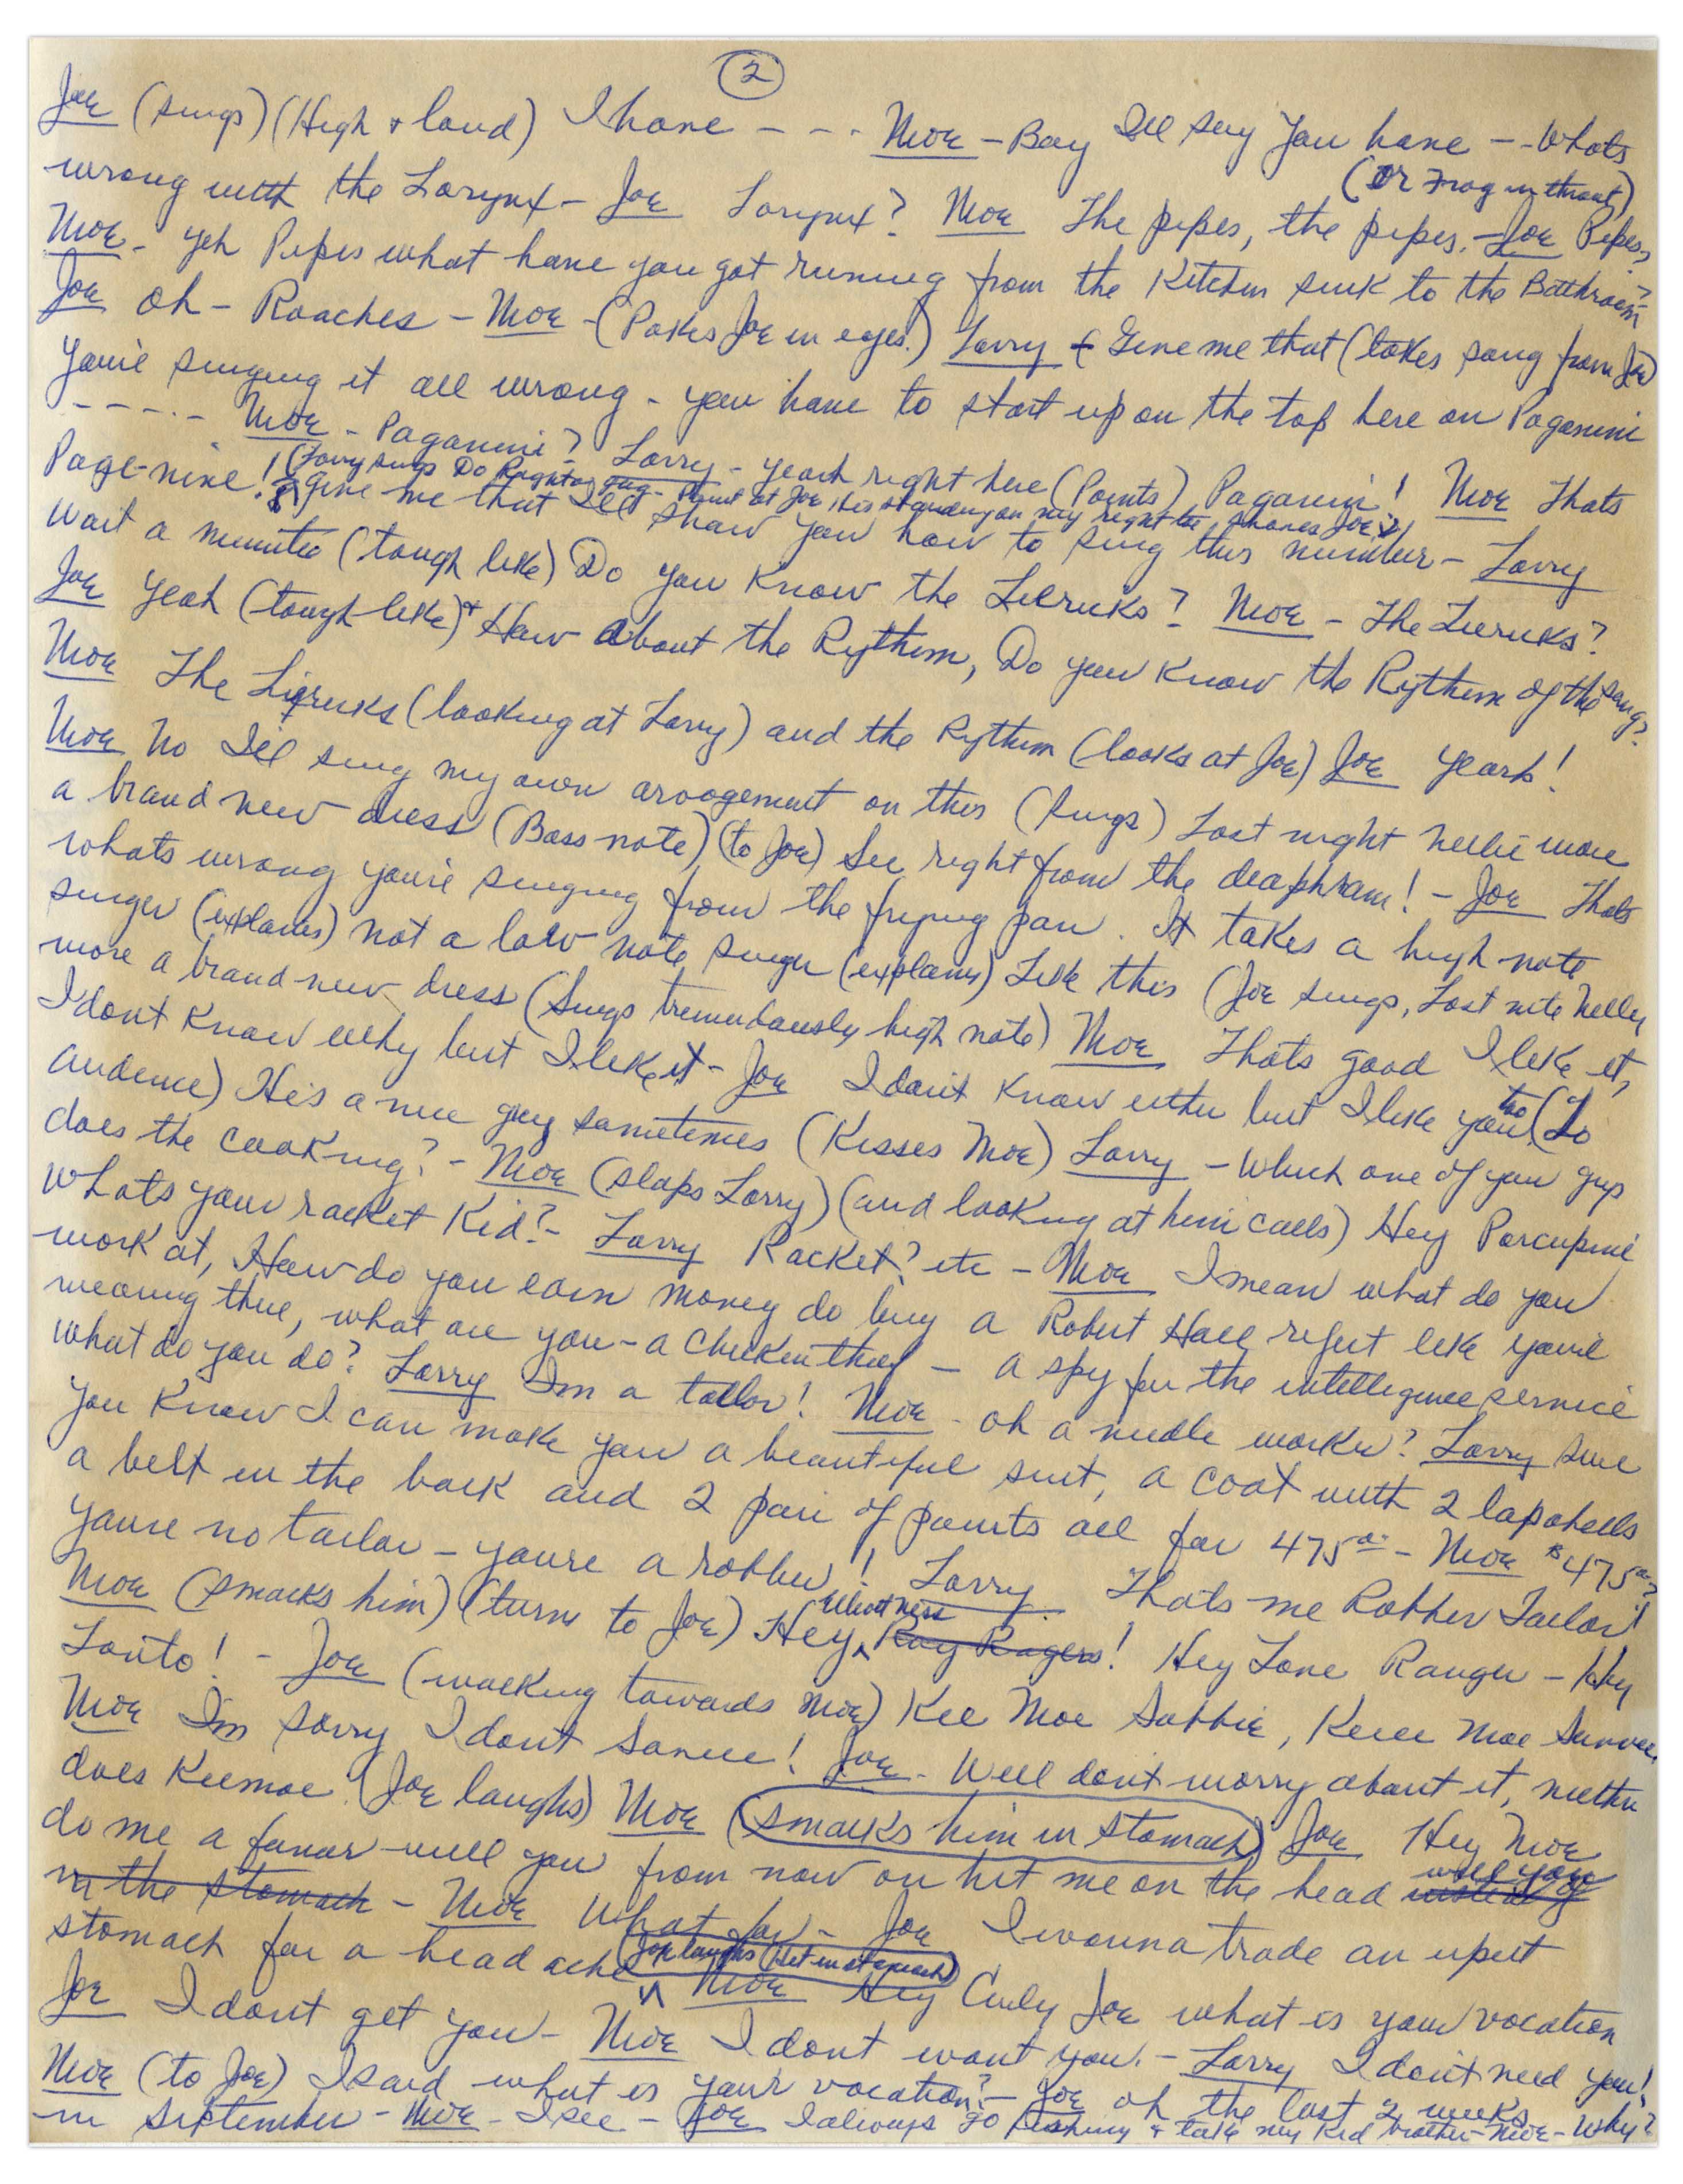 2
Joe (sings) (High + loud) I have - - - Moe - Boy I'll say you have - - Whats
(Or Frog in throat)
wrong with the Larynx - Joe Larynx? Moe The pipes, the pipes. - Joe Pipes?
Moe - yeh Pipes what have you got running from the Kitchen sink to the Bathroom?
Joe oh - Roaches - Moe - (Pokes Joe in eyes.) Larry - Give me that (takes song from Joe)
You're singing it all wrong - you have to start up on the top here on Paganini
- - - - - Moe - Paganini? Larry - yeah right here (Points) Paganini! Moe Thats
(Larry sings Do Point at Joe His standing on my right
Page-nine! give me that I'll show you how to sing this number - Larry
Wait a minute (tough like) Do you know the Leericks? Moe - The Leericks?
Joe Yeah (tough-like) + How about the Rythem, Do you know the Rythem of the song?
Moe The Liericks (looking at Larry) and the Rythem (looks at Joe) Joe Yeah!
Moe No I'll sing my own arrogement on this (Sings) Last night Nellie wore
a brand new dress (Bass note) (to Joe) See right from the deaphram! - Joe Thats
whats wrong you're singing from the frying pan. It takes a high note
singer (explains) not a low note singer (explains) Like this (Joe sings, Last nite Nelly
wore a brand new dress (Sings tremendously high note) Moe Thats good I like it,
I dont Know why but I like it - Joe I don't Know either but I like you too (To
audience) He's a nice guy sometimes (Kisses Moe) Larry - Which one of you guys
does the cooking? - Moe (slaps Larry) (and looking at him calls) Hey Porcupine
Whats your racket Kid? - Larry Racket? etc - Moe I mean what do you
work at, How do you earn money do buy a Robert Hall reject like you're
wearing there, what are you - a chicken thief - a spy for the intelligence service
What do you do? Larry Im a tailor! Moe - oh a needle worker? Larry sure
you Know I can make you a beautiful suit, a coat with 2 lapahells
a belt in the back and 2 pair of pants all for 475.00 - Moe $475.00?
you're no tailor - you're a robber! Larry. Thats me Robber Tailor!
Moe (smacks him) (turns to Joe) Hey Elliott Ness Roy Rogers! Hey Lone Ranger - Hey
Tonto! - Joe (walking towards Moe) Kee Moe Sabbie, Keee Moe Sanvee.
Moe Im sorry I dont Sanvee! Joe - Well don't worry about it, neither
does Keemoe (Joe laughs) Moe (smacks him in stomach) Joe Hey Moe
do me a favor will you from now on hit me on the head will you instead of
in the stomach - Moe What for - Joe I wanna trade an upset
stomach for a head ache (Joe laughs (Hit in stomach) Moe Hey Curly Joe what is your vocation
Joe I dont get you - Moe I dont want you. - Larry I don't need you!
Moe (to Joe) I said what is your vacation? - Joe oh the last 2 weeks
in September - Moe - I see - Joe I always go fishing + take my Kid brother - Moe - Why?